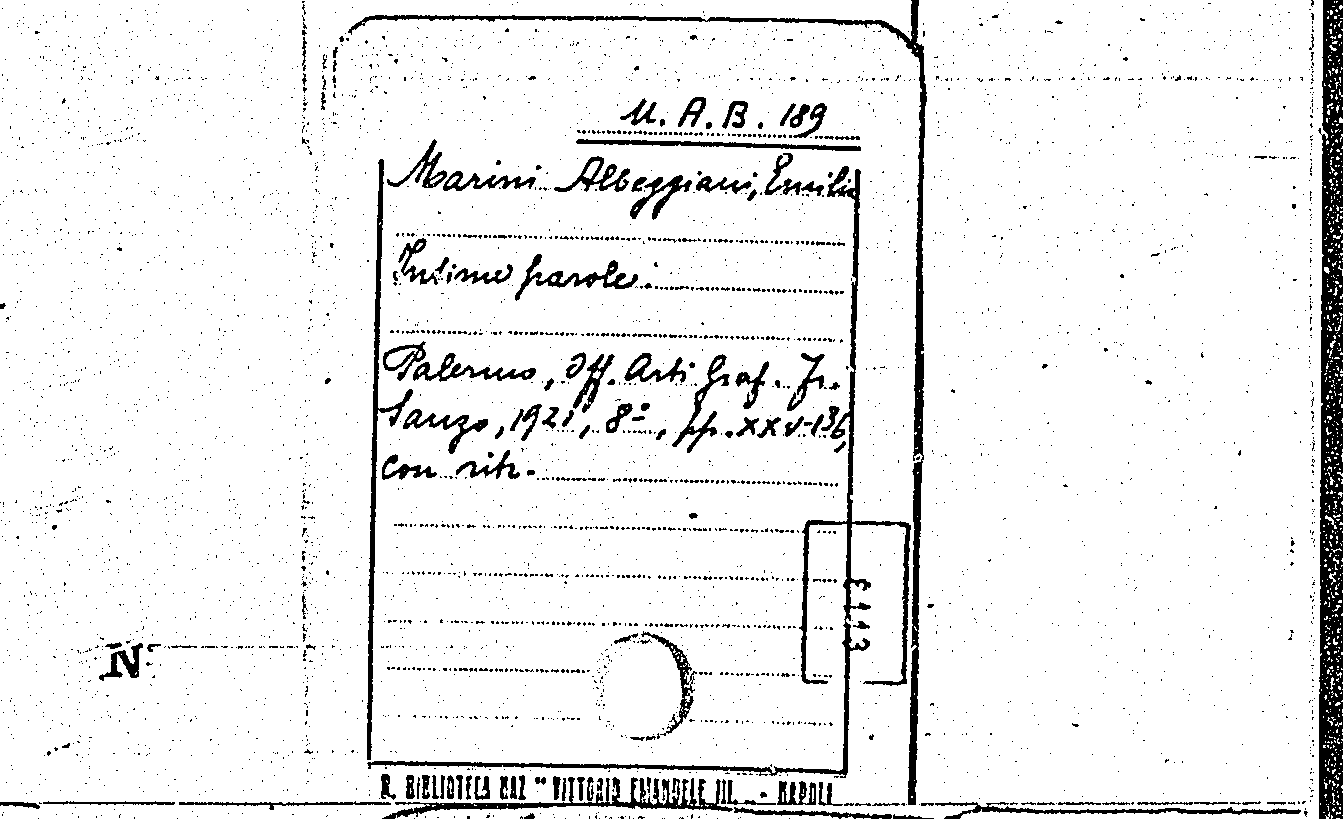 M. A. B. 189
Marini Albeggiani, Emilia
Intime parole.
Palermo, Off. Arti Graf. Fr.
Sanzo, 1921, 8º, pp. XXV-136,
con ritr.
N
R. BIBLIOTECA NAZ "VITTORIO EMANUELE III. - NAPOLI